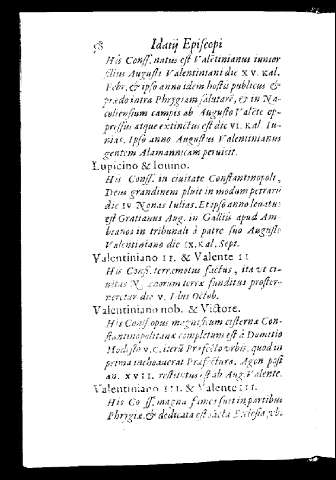 58 Idatij Episcopi
His Conss. natus est Valentinianus iunior
filius Augusti Valentiniani die XV. Kal.
Febr. & ipso anno idem hostis publicus &
prædo intra Phrygiam salutarē, et in Na-
coliensium campis ab Augusto Valēte op-
pressus atque extinctus est die VI. Kal. Iu-
nias. Ipso anno Augustus Valentinianus
gentem Alamannicam peruicit.
Lupicino & Iouino.
His Conss. in ciuitate Constantinopoli,
Deus grandinem pluit in modum petrarū
die IV Nonas Iulias. Et ipso anno leuatus
est Gratianus Aug. in Galliis apud Am-
beanos in tribunali à patre suo Augusto
Valentiniano die IX. Kal. Sept.
Valentiniano II. & Valente II
His Conss. terremotus factus, ita vt ci-
uitas terræ funditus proster-
neretur die V. Idus Octob.
Valentiniano nob. & Victore.
His Conss opus magnificum cisternæ Con-
stantinopolitanæ completum est à Domitio
Modesto V. C. iterū Præfecto vrbis, quod in
prima inchoauerat Præfectura. Agon post
an. XVII. restitutus est ab Aug. Valente.
Valentiniano III. & Valente III.
His Co ss. magna fames fuit in partibus
Phrygiæ. & dedicata est Ecclesia